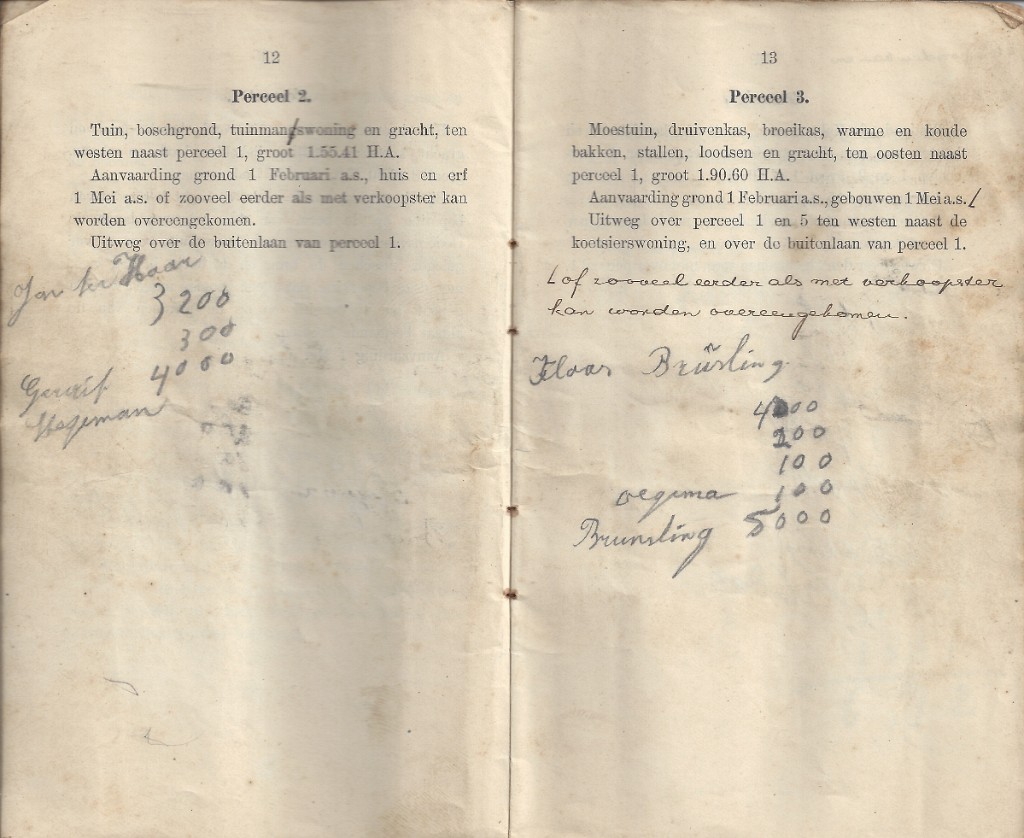 12
Perceel 2.
Tuin, boschgrond, tuinmanswoning en gracht, ten
westen naast perceel 1, groot 1.55.41 H.A.
Aanvaarding grond 1 Februari a.s., huis en erf
1 Mei a.s. of zooveel eerder als met verkoopster kan
worden overeengekomen.
Uitweg over de buitenlaan van perceel 1.
Jan ter Haar
3200
300
4000
Gerrit
Hegeman
13
Perceel 3.
Moestuin, druivenkas, broeikas, warme en koude
bakken, stallen, loodsen en gracht, ten oosten naast
perceel 1, groot 1.90.60 H.A.
Aanvaarding grond 1 Februari a.s., gebouwen 1 Mei a.s.
Uitweg over perceel 1 en 5 ten westen naast de
koetsierswoning, en over de buitenlaan van perceel 1.
of zooveel eerder als met verkoopster
kan worden overeengekomen.
Klaas
4000
200
100
oegema 100
Brunsling 5000